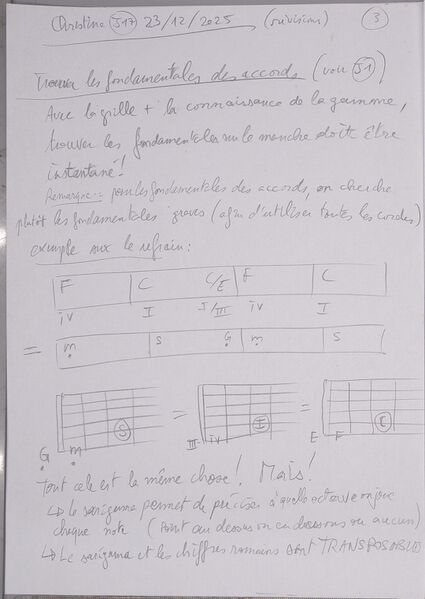 Christine J17 23/12/2025 (révisions) 3
Trouver les fondamentales des accords (voir J1)
Avec la grille + la connaissance de la gamme,
trouver les fondamentales sur le manche doit être
instantané!
Remarque: pour les fondamentales des accords, on cherche
plutôt les fondamentales graves (afin d'utiliser toutes les cordes)
exemple sur le refrain:
F C C/E F C
IV I I/III IV I
= m S G m S
S = I = C
G m III IV E F
Tout cela est la même chose! Mais!
↳ Le sargamma permet de préciser à quelle octave on joue
chaque note (point au dessus ou en dessous ou aucun)
↳ Le sargamma et les chiffres romains sont TRANSPOSABLES